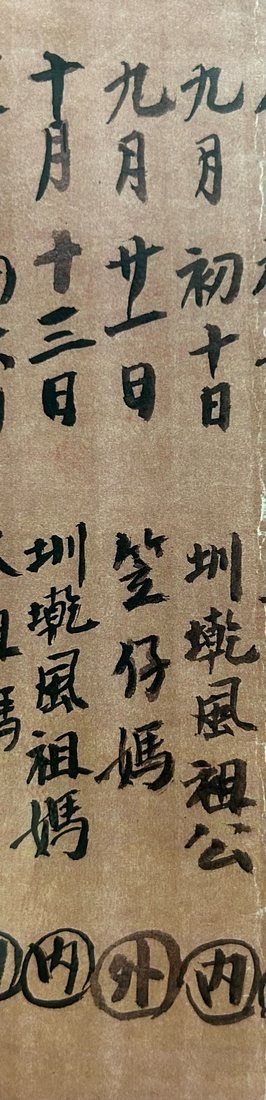 九月初十日 圳墘風祖公 内
九月廿一日 笠仔媽 外
十月十三日 圳墘風祖媽 内